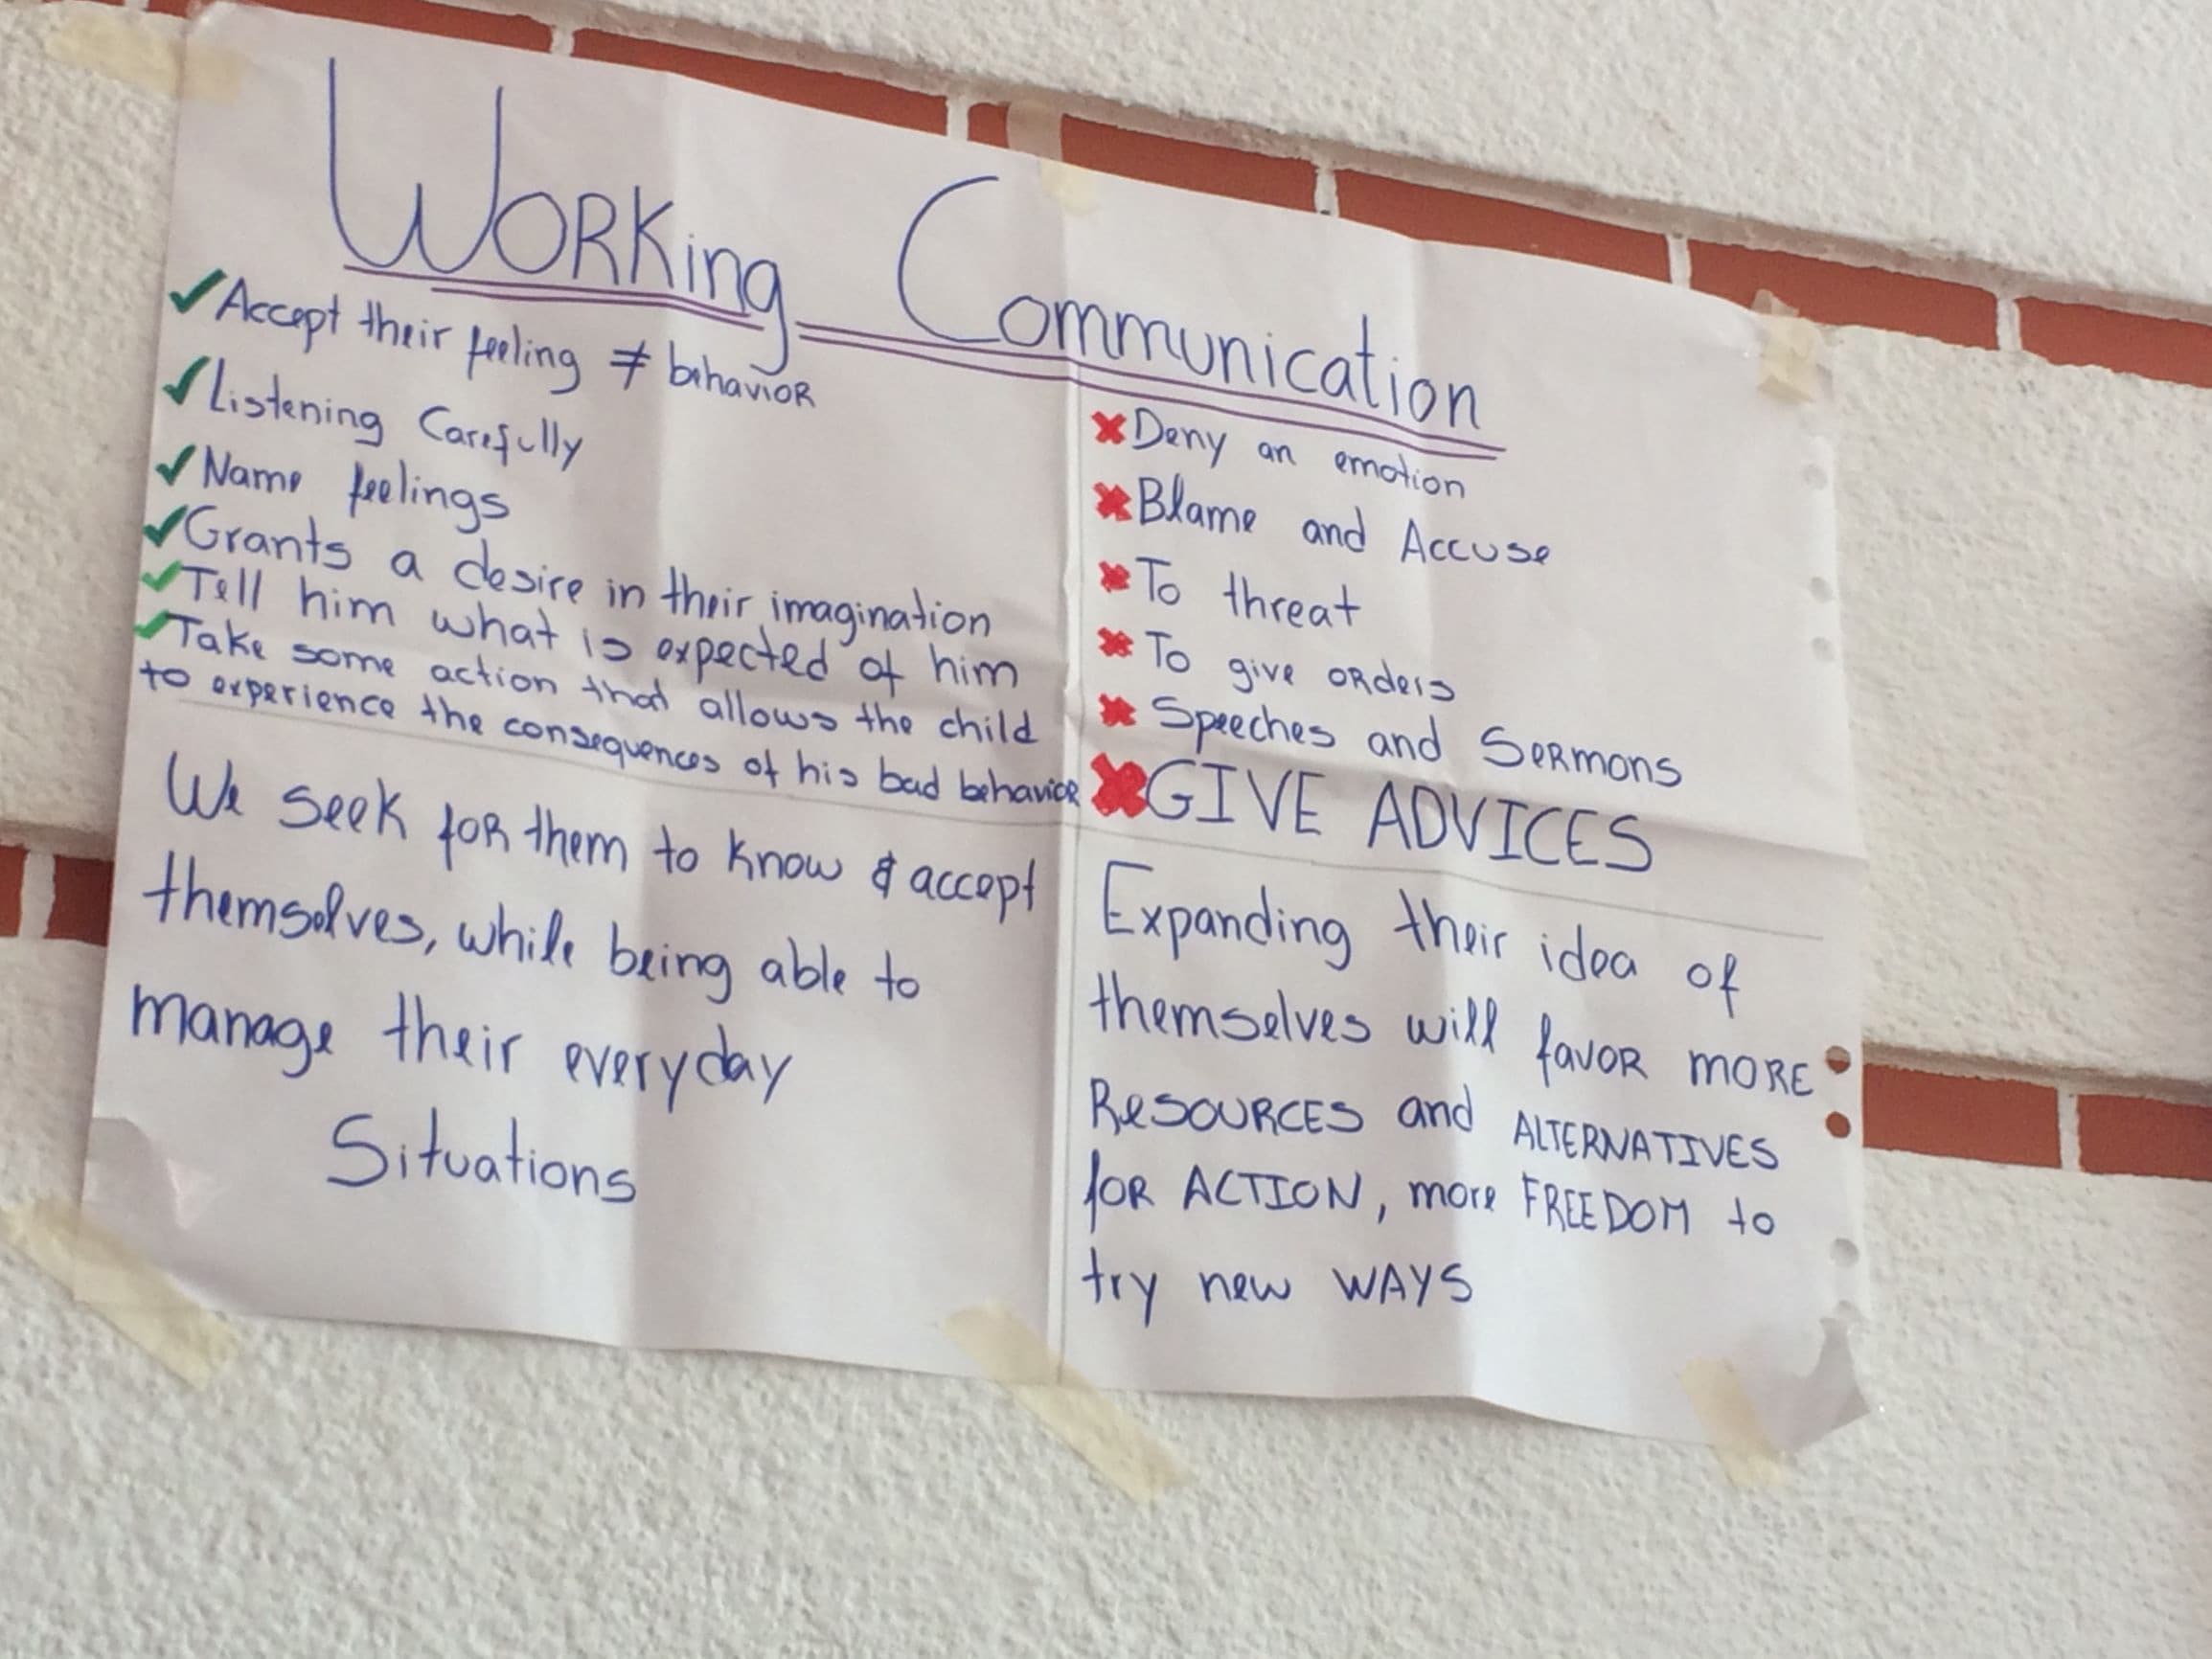 WORKing Communication
✓ Accept their feeling ≠ behavior
✓ Listening Carefully
✓ Name feelings
✓ Grants a desire in their imagination
✓ Tell him what is expected of him
✓ Take some action that allows the child
to experience the consequences of his bad behavior
✗ Deny an emotion
✗ Blame and Accuse
✗ To threat
✗ To give orders
✗ Speeches and Sermons
✗ GIVE ADVICES
We seek for them to know & accept
themselves, while being able to
manage their everyday
Situations
Expanding their idea of
themselves will favor MORE
RESOURCES and ALTERNATIVES
for ACTION, more FREEDOM to
try new WAYS